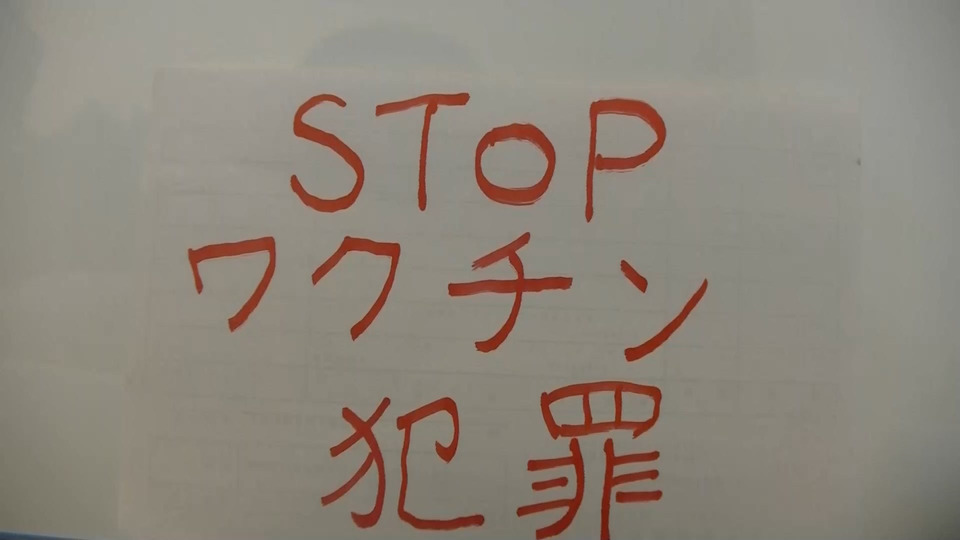 STOP
ワクチン
犯罪